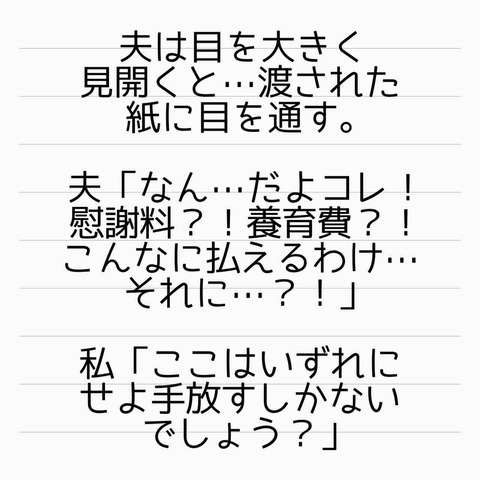 夫は目を大きく
見開くと…渡された
紙に目を通す。
夫「なん…だよコレ！
慰謝料？！養育費？！
こんなに払えるわけ…
それに…？！」
私「ここはいずれに
せよ手放すしかない
でしょう？」